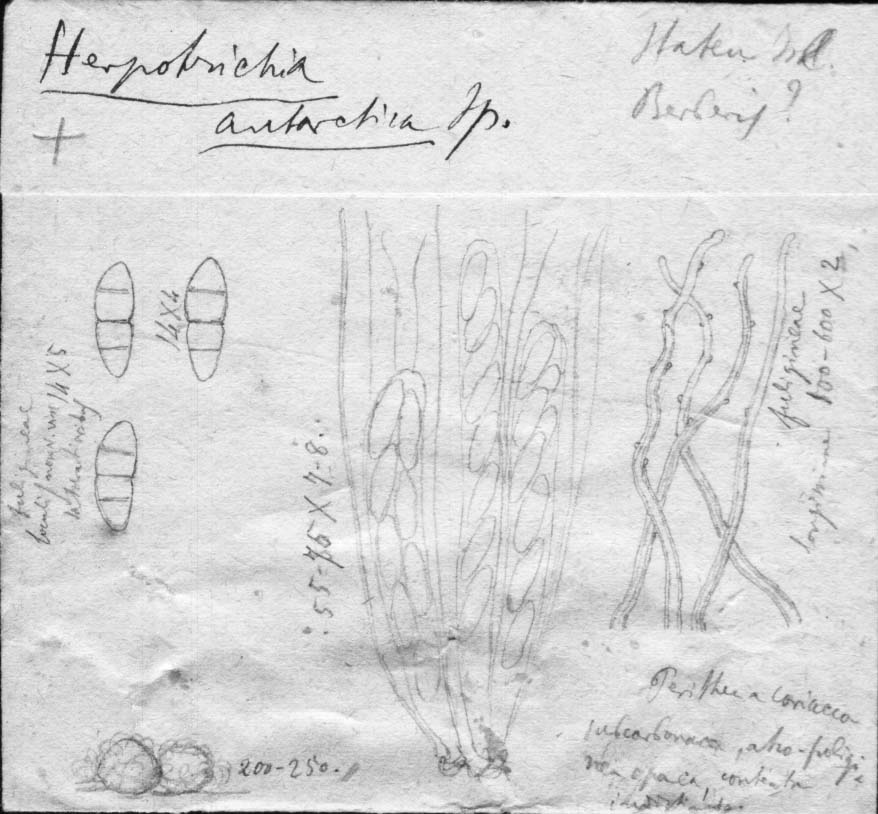 Herpotrichia
antarctica Sp.
Staten Isl.
Berberis?
14X4
fuligineae
14X5
55-75 X 7-8.
fuligineae
longissimae 100-600 X 2,
200-250.
Perithecia coriacea
subcarbonacea, atro-fuligi-
nea, opaca, contexta
indistincto.